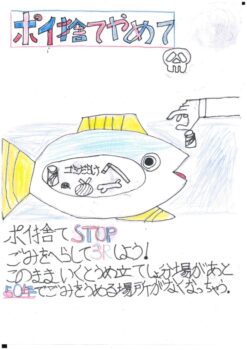 ポイ捨てやめて
ポイ捨てSTOP
ごみをへらして3Rしよう!
このままいくとうめ立てしょ分場があと
50年でごみをうめる場所がなくなっちゃう。